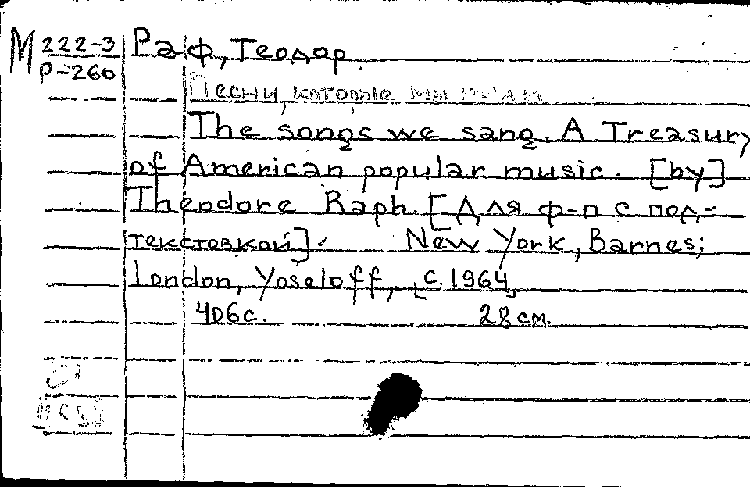 М 222-3 Раф, Теодор.
Р-260
Песни, которые мы
The songs we sang. A Treasury
of American popular music. [by]
Theodore Raph. [Для ф-п с под-
текстовкой]. New York, Barnes;
London, Yoseloff, [c 1964]
406с. 28 см.